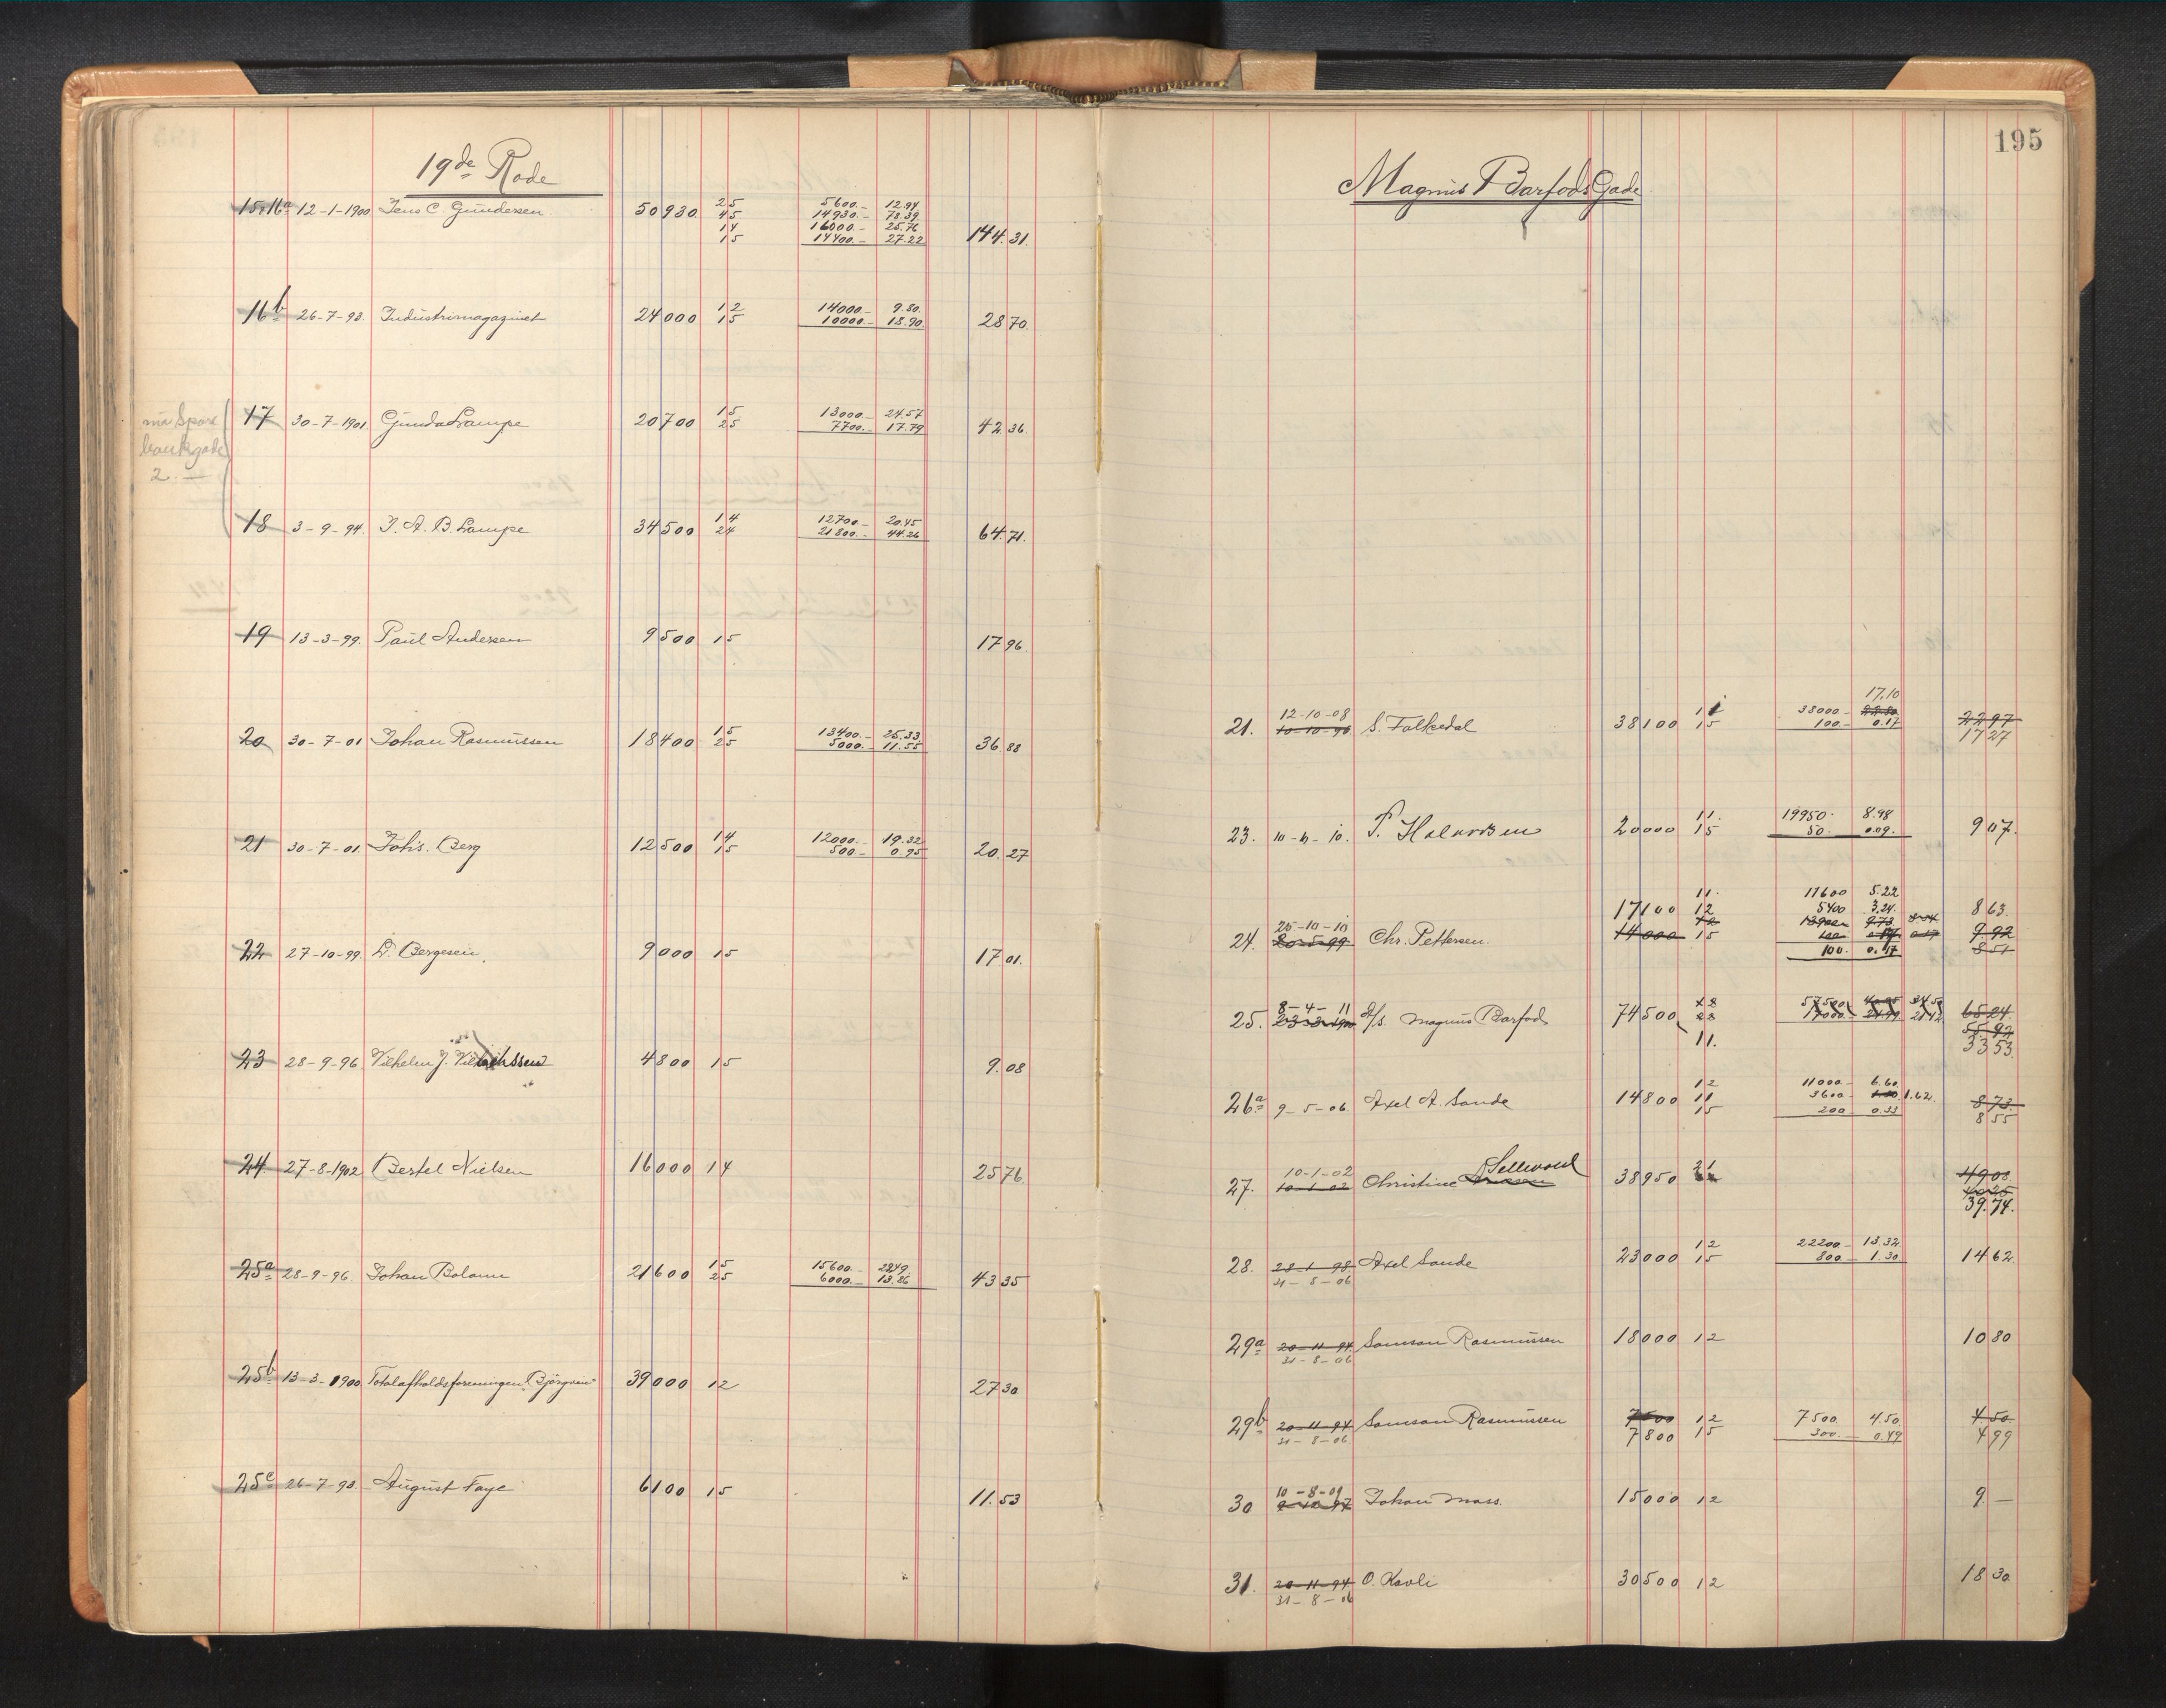 19de Rode
15.16a 12-1-1900 Jens C. Gundersen 50930 25 5600.- 12.94
45 14930.- 78.39
14 16000.- 25.76
15 14400.- 27.22 144.31.
16b 26-7-93. Industrimagazinet 24000 12 14000.- 9.80.
15 10000.- 18.90. 28 70.
17 30-7-1901 Gunda Lampe 20700 15 13000.- 24.57
25 7700.- 17.79 42.36.
2.-
18 3-9-94. J. A. B. Lampe 34500 14 12700.- 20.45
24 21800.- 44.26 64.71.
19 13-3-99. Paul Andersen 9500 15 17 96.
20 30-7-01 Johan Rasmussen 18400 15 13400.- 25.33
25 5000.- 11.55 36.88
21 30-7-01. Johs. Berg 12500 14 12000.- 19.32
15 500.- 0.95 20.27
22 27-10-99. D. Bergesen. 9000 15 17 01.
23 28-9-96. Vilhelm J. 4800 15 9.08
24. 27-8-1902 Bertel Nielsen 16000 14 25 76.
25a 28-9-96. Johan Bolann 21600 15 15600.- 29.49.
25 6000.- 13.86 43 35
25b 13-3-1900 Totalafholdsforeningen Bjørgvin 39000 12 27 30
25c 26-7-93. August Faye 6100 15 11.53
195
Magnus Barfods Gade
17.10
21. 12-10-08 S. Falkedal 38100 11 38000.- 22.80
10-10-96 15 100.- 0.17 22 97
17 27
23. 10-5-10. P. Halvorsen 20000 11. 19950.- 8.98
15 50.- 0.09. 9 07.
11. 11600 5.22
17100 12 5400 3.24. 8 63.
24. 25-10-10 Chr. Pettersen. 12 13900 9.73
20-5-99 14000 15 9 92
100. 0.17 8 51
25. 8-4-11 A/s. Magnus Barfod 74500 57500 40.25 34.50 65 24.
23-3-1900 17000 55.92
11. 33 53.
26a 9-5-06. Axel A. Sande 14800 12 11000.- 6.60.
11 3600.- 1.80. 1.62. 8 73.
15 200 0.33 8 55
27. 10-1-02 Christine Sellevold 38950 21 49 08
10-1-02 39.74.
28. 28-1-98. Axel Sande 23000 12 22200.- 13.32
31-8-06 15 800.- 1.30 14 62
29a 20-11-94. Samson Rasmussen 18000 12 10 80
31-8-06
29b 20-11-94 Samson Rasmussen 7500 12 7500. 4.50. 4.50.
31-8-06. 7800 15 300.- 0.49 4 99
30 10-8-09 Johan Mass. 15000 12 9.-
31. 20-11-94 O. Kavli 30500 12 18 30.
31-8-06